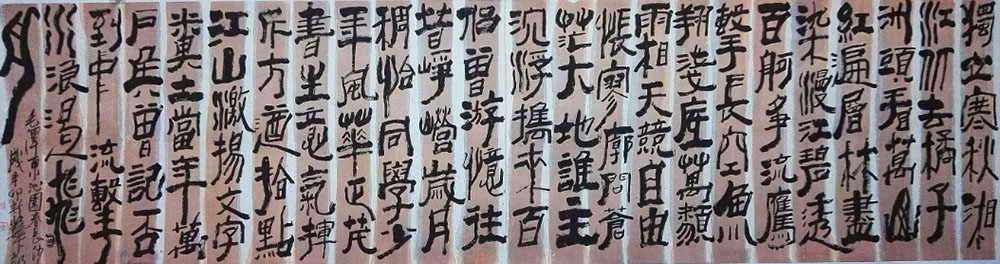 獨立寒秋湘
江北去橘子
洲頭看萬山
紅遍層林盡
染漫江碧透
百舸爭流鷹
擊長空魚
翔淺底萬類
霜天競自由
悵寥廓問蒼
茫大地誰主
沉浮攜來百
侶曾游憶往
昔崢嶸歲月
稠恰同學少
年風華正茂
書生意氣揮
斥方遒指點
江山激揚文字
糞土當年萬
戶侯曾記否
到中流擊
水浪遏飛
舟
毛澤東沁園春長沙
歲辛卯